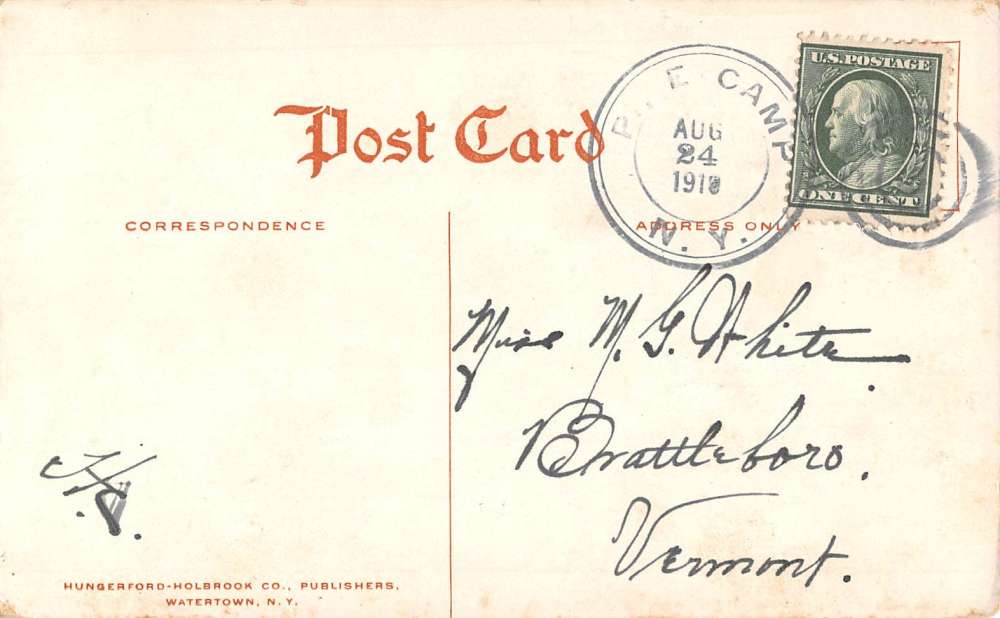 Post Card
P E CAMP
AUG
24
N. Y.
U.S. POSTAGE
ONE CENT
CORRESPONDENCE
ADDRESS ONLY
Miss M. G. White
Brattleboro.
Vermont.
HUNGERFORD-HOLBROOK CO., PUBLISHERS,
WATERTOWN, N. Y.